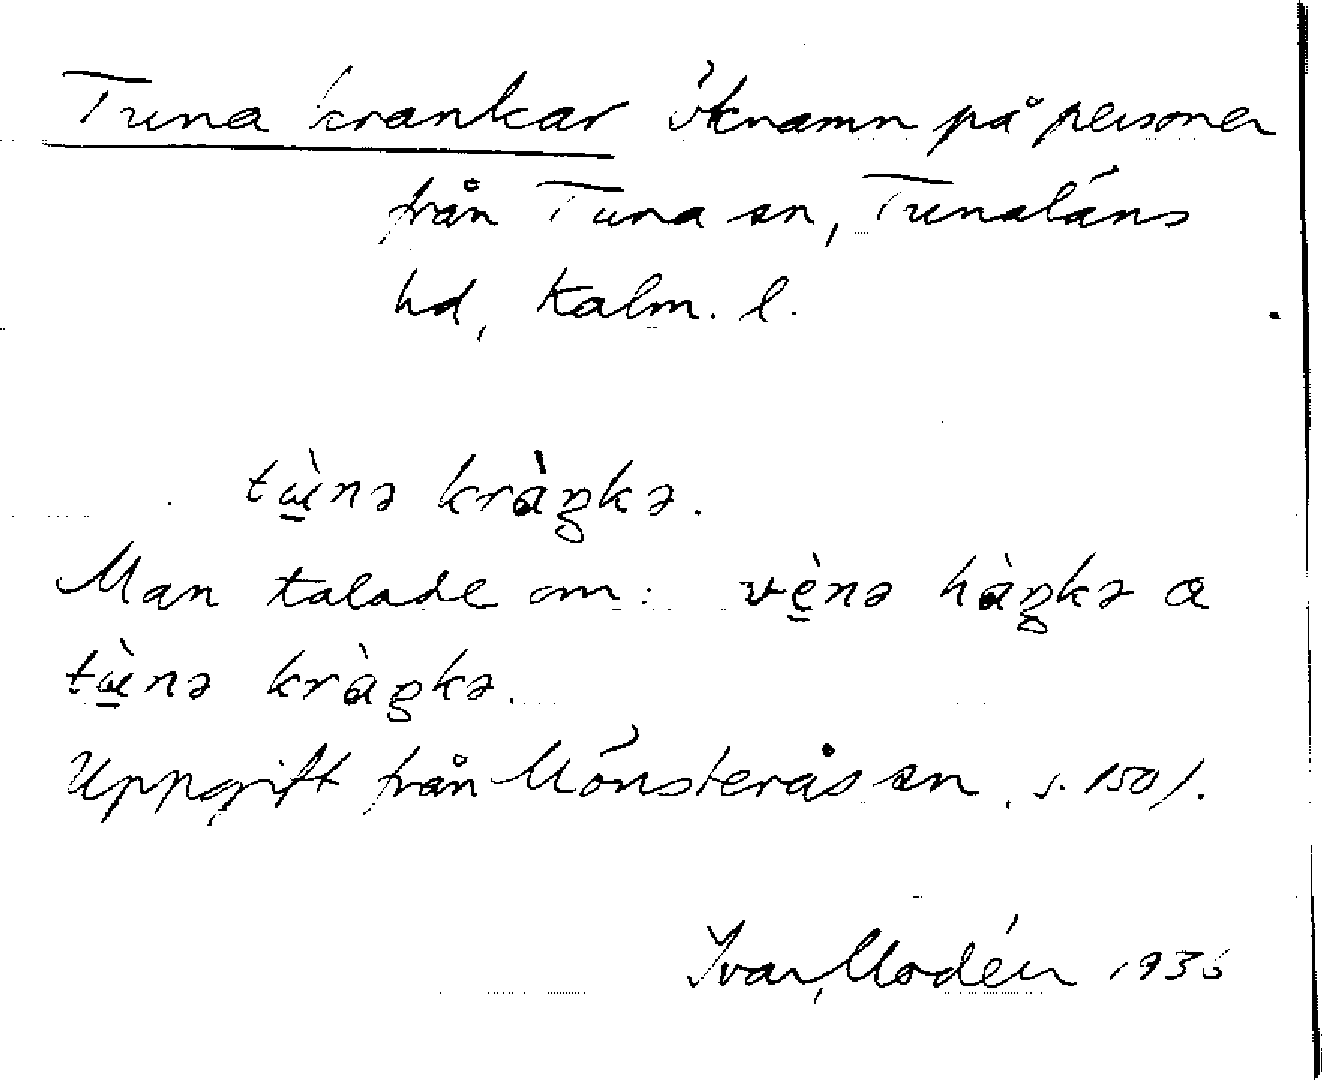 Tuna krankar öknamn på personer
från Tuna sn, Tunaläns
hd, Kalm. l.
tɯ̱̀nə kràŋkə.
Man talade om: vè̱nə hàŋkə a
tɯ̱̀nə kràŋkə.
Uppgift från Mönsterås sn, s. 150/.
Ivar Modéer 1936